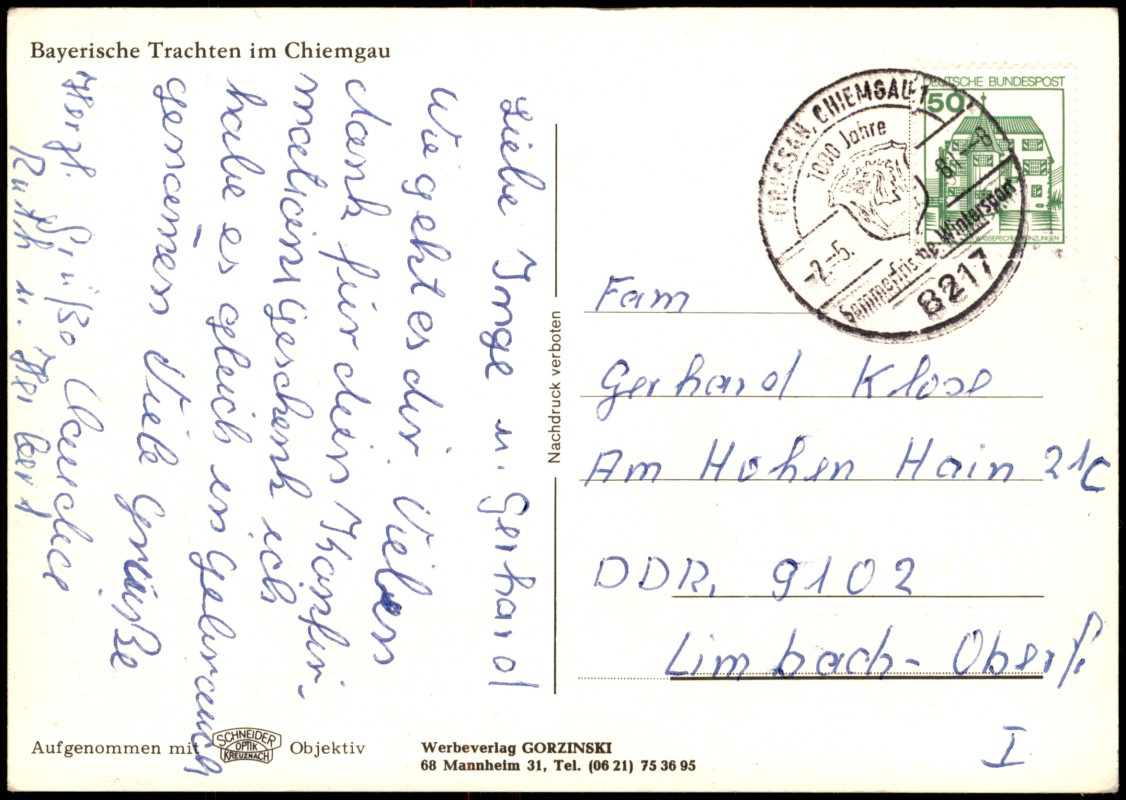 Bayerische Trachten im Chiemgau
Liebe Inge u. Gerhard
Wie geht es dir Vielen
dank für dein Konfir-
mationsgeschenk ich
habe es gleich in Gebrauch
genomen Viele Grüße
Herzl. Grüße
Ruth u. Herbert
Nachdruck verboten
DEUTSCHE BUNDESPOST
50
GRASSAU, CHIEMGAU 1
1000 Jahre
-2.-5.
80.-8
Sommerfrische Wintersport
8217
Fam
Gerhard Klose
Am Hohen Hain 21C
DDR, 9102
Limbach-Oberf.
I
Aufgenommen mit SCHNEIDER OPTIK KREUZNACH Objektiv
Werbeverlag GORZINSKI
68 Mannheim 31, Tel. (06 21) 75 36 95